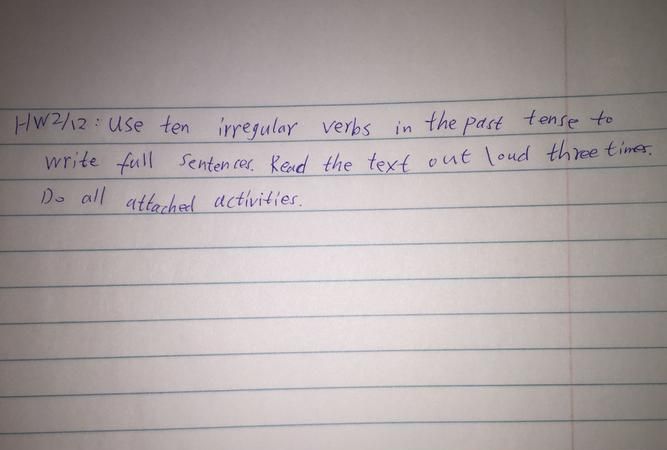 HW2/12: Use ten irregular verbs in the past tense to
write full sentences. Read the text out loud three times.
Do all attached activities.